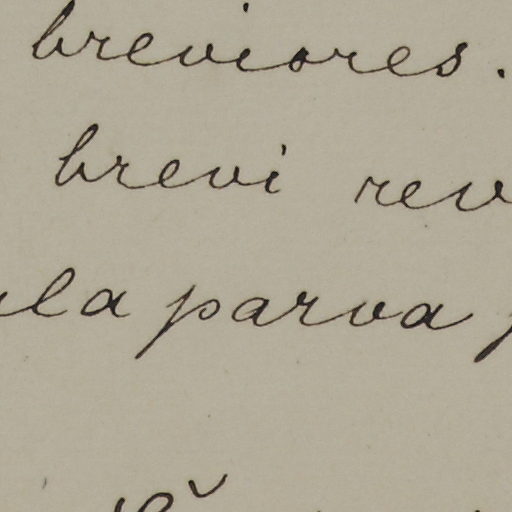 breviores.
brevi rev
la parva